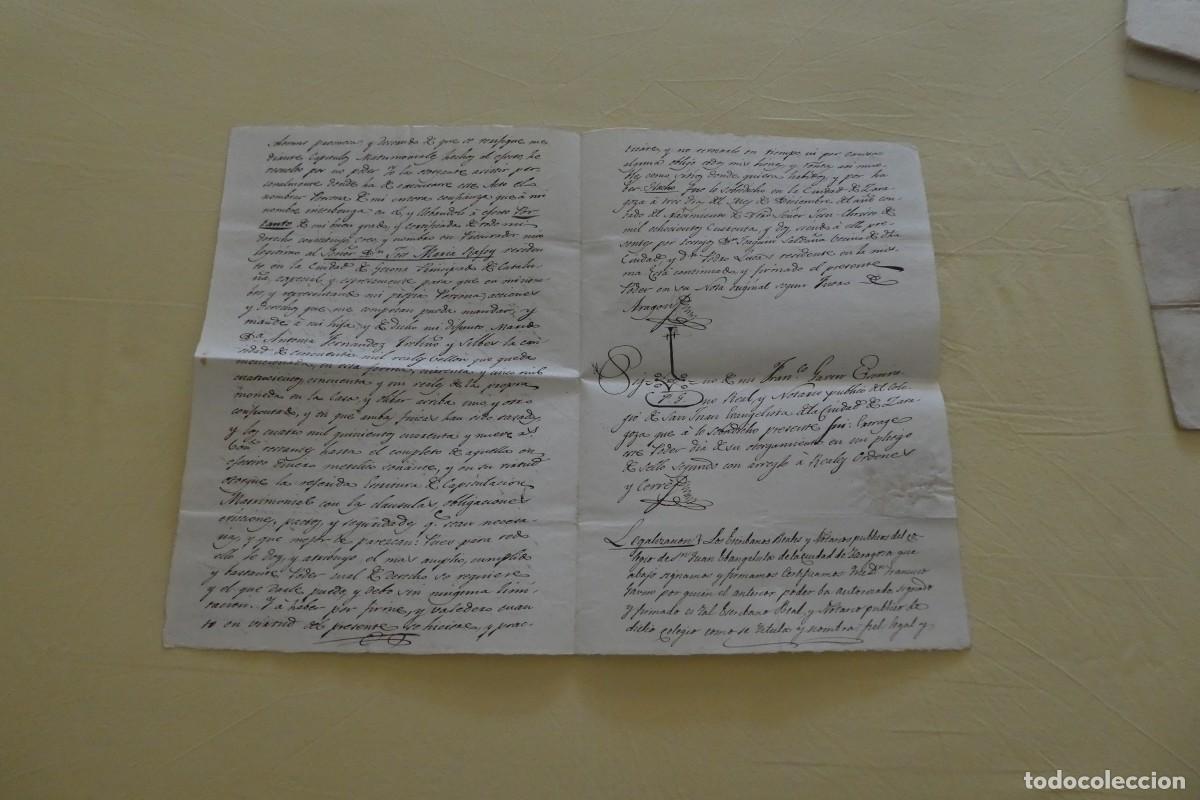 diante Capitulos Matrimoniales hechos al efecto, he
resuelto por no poder Yo la otorgante asistir per-
sonalmente donde ha de efectuarse este Acto el
nombrar Persona de mi entera confianza que à mi
nombre intervenga en el, y llevandolo à efecto Por
tanto de mi buen grado, y certificada de todo mi
derecho constituyo, creo, y nombro en Procurador mio
legitimo al Señor Dn. José Maria Rafoy residen
te en la Ciudad de Gerona Principado de Catalu-
ña, especial y expresamente para que en mi nom-
bre, y representando mi propia Persona, acciones
y derechos que me competan pueda mandar, y
mande à mi hija, y de dicho mi difunto Marido
Da. Antonia Fernandez la can
tidad de cincuenta mil reales vellon que queda
mencionada, en esta forma, cuarenta y cinco mil
cuatrocientos cincuenta y un reales de la propia
moneda en la Casa, y arriba uno, y otro
confrontado, y en que ambas fincas han sido tasadas,
y los cuatro mil quinientos cuarenta y nueve rs.
von. restantes hasta el completo de aquellos en
efectivo dinero metalico sonante, y en su virtud
otorgue la referida Escritura de Capitulacion
Matrimonial con las clausulas obligaciones
pactos, y seguridades qe. sean necesa-
rias, y que mejor le parezcan: Pues para todo
ello le doy, y atribuyo el mas amplio, cumplido
y bastante Poder cual de derecho se requiere
y el que darle puedo, y debo sin ninguna limi-
tacion. Y à haber por firme, y valedero cuan
to en virtud del presente se hiciere, y prac-
ticare, y no revocarlo en tiempo ni por causa
alguna obligo todos mis bienes y rentas asi mue-
bles como sitios donde quiera habidos y por ha
ber. Hecho fue lo sobredicho en la Ciudad de Zara
goza à tres dias del Mes de Diciembre del año con
tado del Nacimiento de Ntro Señor Jesu-Christo de
mil ochocientos Cuarenta, y dos siendo à ello pre-
sentes por testigos Dn. Joaquin Saldaña vecino de dha
Ciudad y dn. Pedro Lucas residente en la mis
ma Está continuado, y firmado el presente
Poder en su Nota original segun Fueros de
Aragon
Sig no de mi Franco. Gavin Escriva
no Real, y Notario publico del Cole
gio de San Juan Evangelista de la Ciudad de Zara-
goza que à lo sobredicho presente fui: Extraje
este Poder dia de su otorgamiento en un pliego
de sello segundo con arreglo à Reales Ordenes
y Cerré
Legalizacion. Los Escribanos Reales y Notarios publicos del co-
legio de Sn. Juan Evangelista de la ciudad de Zaragoza que
abajo signamos y firmamos Certificamos que Dn. Francisco
Gavin por quien el anterior poder ba autorizado signado
y firmado es tal Escribano Real, y Notario publico de
dicho Colegio como se titula y nombra fiel legal y
todocoleccion